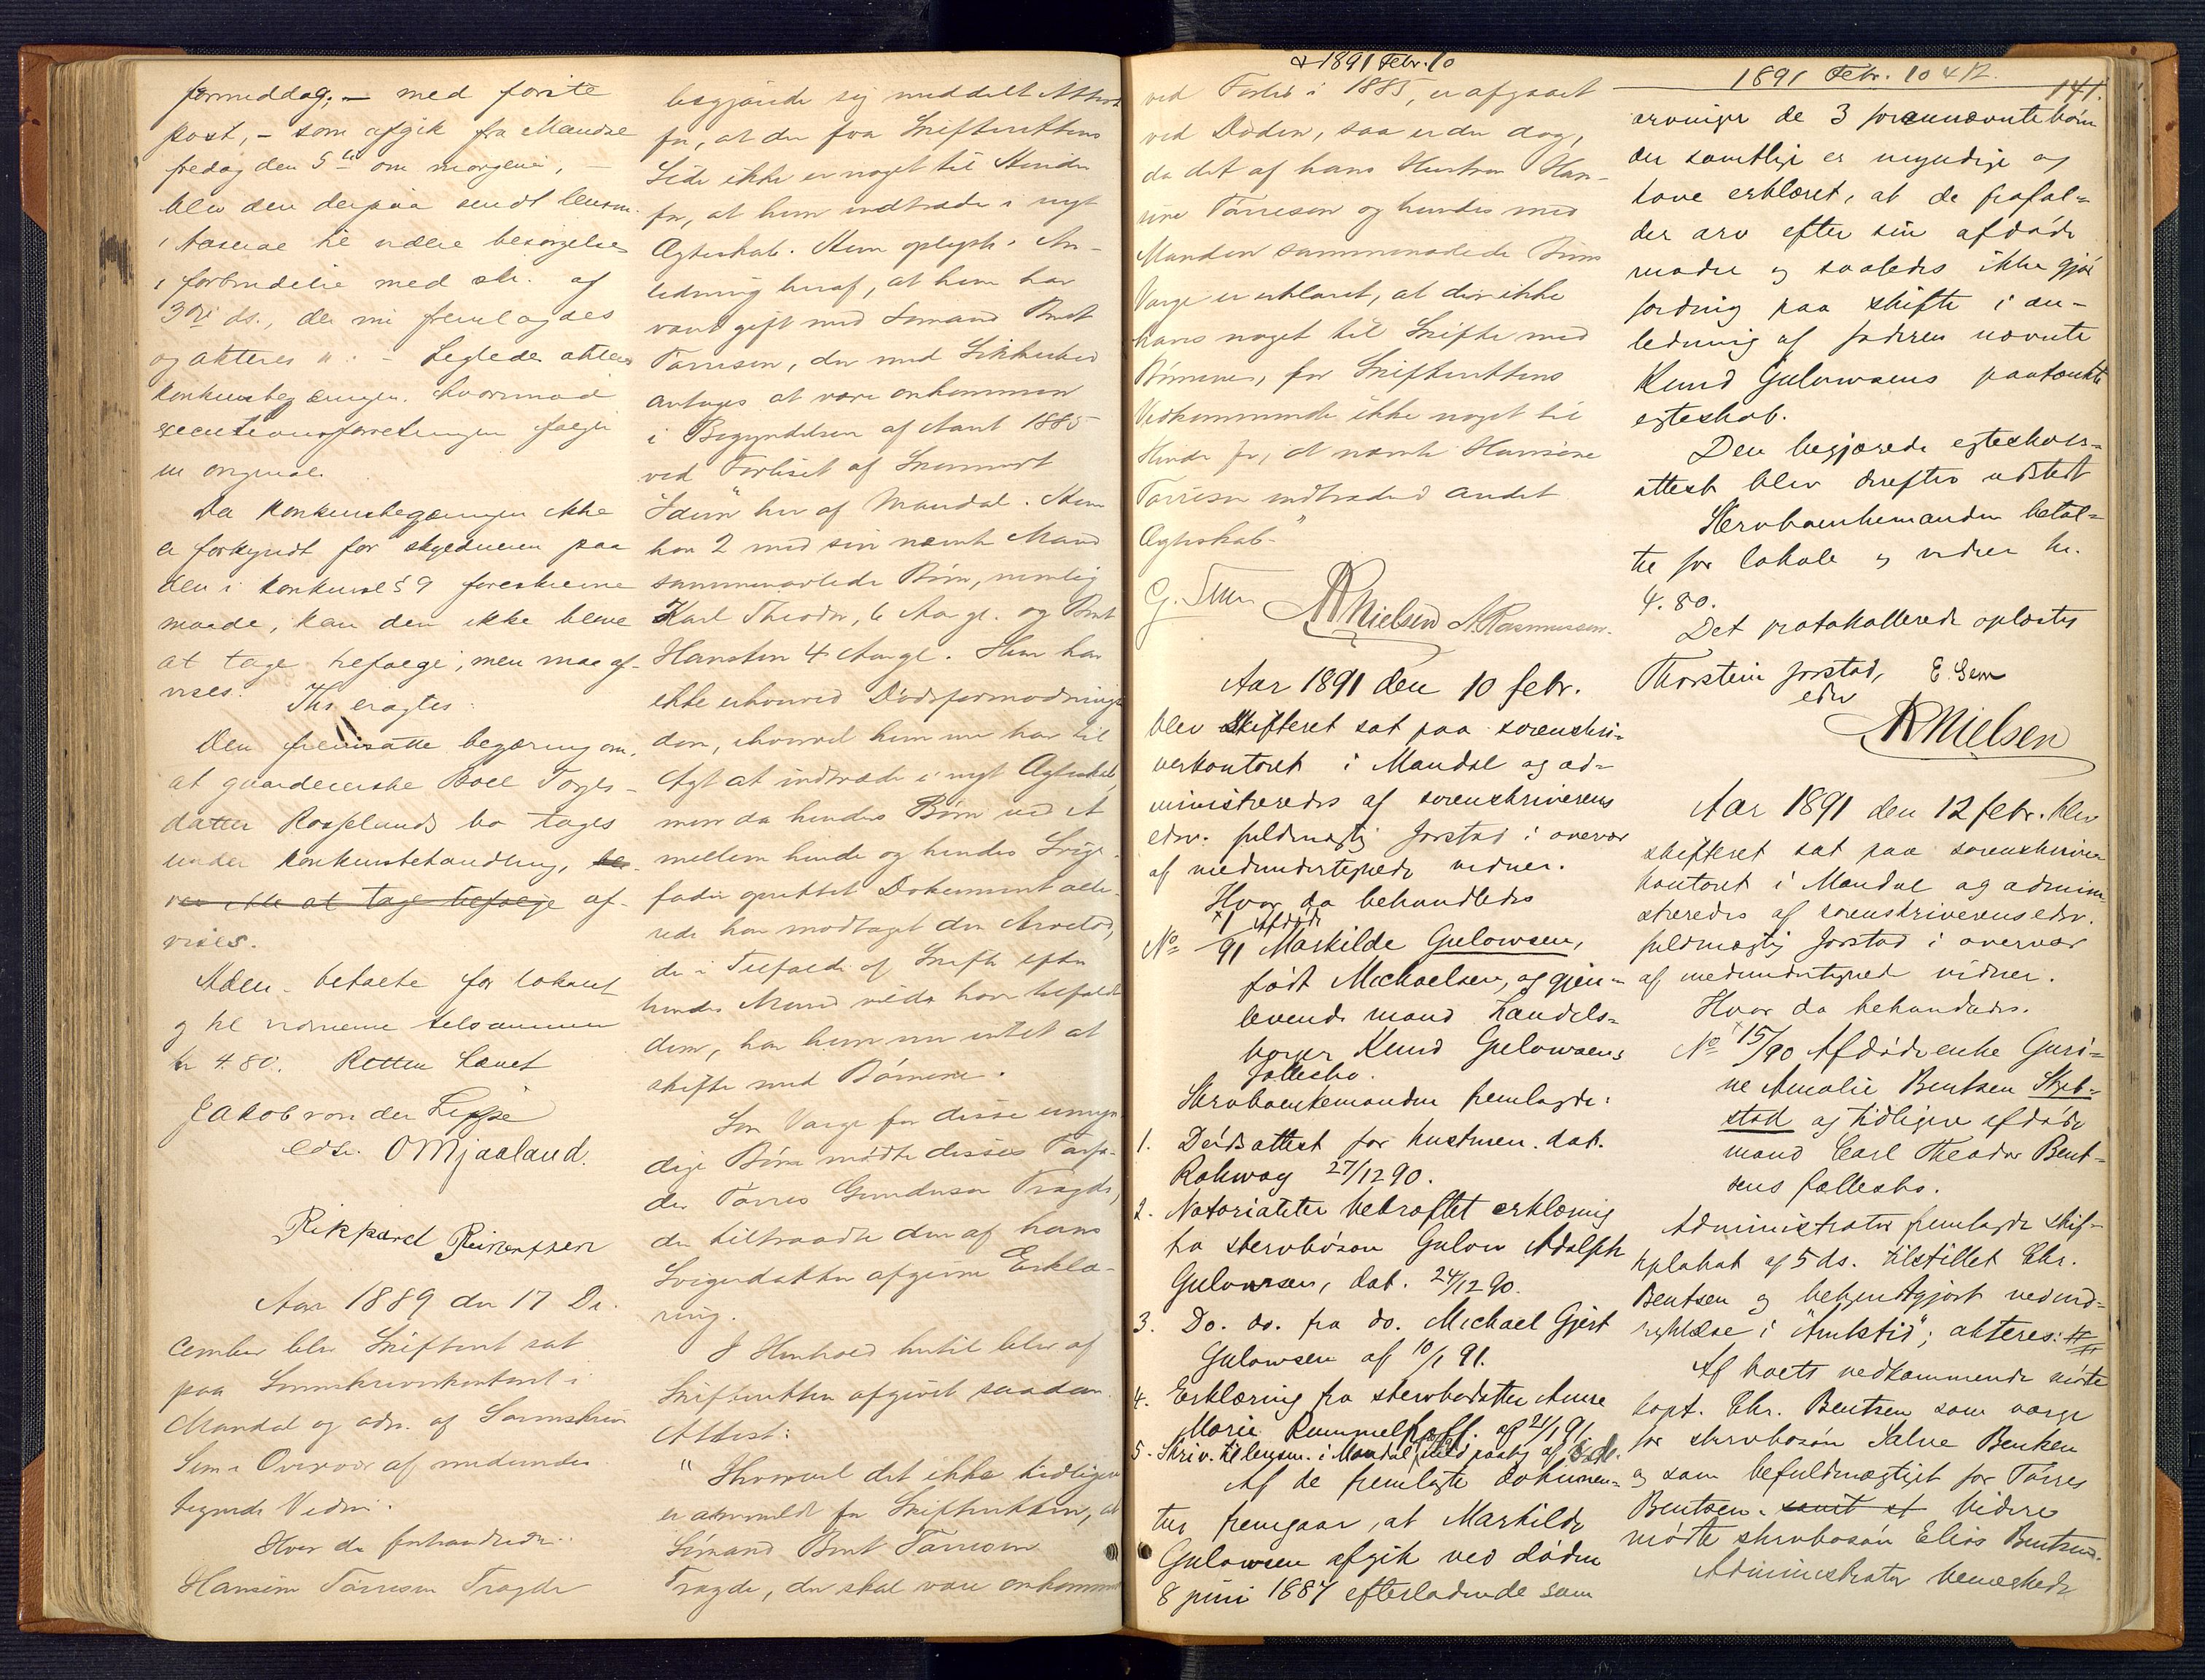 formeddag; – med første
post, – som afgik fra Mandal
fredag den 5te om morgenen, –
blev den derpaa sendt lensm.
i Aaserae til videre besørgelse
i forbindelse med skr. af
3die ds., der nu fremlagdes
og akteres
konkursbegæringen, hvormed
executionsforretningen følger
in original.
Da konkursbegæringen ikke
er forkyndt for skyldneren paa
den i konkursl § 9 foreskrevne
maade, kan den ikke blive
at tage tilfølge, men maa af-
vises.
Thi eragtes:
Den fremsatte begæring om,
at gaardeierske Boel Torges-
datter Rosselands bo tages
under konkursbehandling,
ver ikke at tage tilfølge af-
vises.
Aden. betalte for lokalet
og til vidnerne tilsammen
kr 4.80. Retten hævet
Jakob von der Lippe
edsv. O Mjaaland.
Rikhard Reinertsen
Aar 1889 den 17 De-
cember blev Skifteret sat
paa Sorenskriverkontoret i
Mandal og adm. af Sorenskriver
Sem i Overvær af medunder-
tegnede Vidner.
Hvor da forhandledes:
Hansine Tørresen Tregde
begjærede sig meddelt Attest
for, at der fra Skifterettens
Side ikke er noget til Hinder
for, at hun indtræder i nyt
Ægteskab. Hun oplyste i An-
ledning heraf, at hun har
været gift med Sømand Bent
Tørresen, der med Sikkerhed
antages at være omkommen
i Begyndelsen af Aaret 1885
ved Forliset af
her af Mandal. Hun
har 2 med sin nævnte Mand
sammenavlede Børn, nemlig
Karl Theodor, 6 Aar gl. og Bent
Hansten 4 Aar gl. Hun har
ikke erhvervet Dødsformodnings-
dom, ihvorvel hun nu har til
Agt at indtræde i nyt Ægteskab,
men da hendes Børn ved et
mellem hende og hendes Sviger-
fader oprettet Dokument alle-
rede har modtaget den Arvelod,
der i Tilfælde af Skifte efter
hendes Mand vilde have tilfaldt
dem, har hun nu intet at
skifte med Børnene.
Som Værge for disse umyn-
dige Børn mødte disses Farfa-
der Tørres Gundersen Tregde,
der tiltraadte den af hans
Svigerdatter afgivne Erklæ-
ring.
I Henhold hertil blev af
Skifteretten afgivet saadan
Attest:
"Ihvorvel det ikke tidligere
er anmeldt for Skifteretten, at
Sømand Bent Tørresen
Tregde, der skal være omkommet
& 1891 Febr. 10
ved Forlis i 1885, er afgaaet
ved Døden, saa er der dog,
da det af hans Hustru Han-
sine Tørresen og hendes med
Manden sammenavlede Børns
Værge er erklæret, at der ikke
haves noget til Skifte med
Børnene, for Skifterettens
Vedkommende ikke noget til
Hinder for, at nævnte Hansine
Tørresen indtræder i andet
Ægteskab."
G. Sem
AR Nielsen A. Rasmussen.
Aar 1891 den 10 febr.
blev Skifteret sat paa sorenskri-
verkontoret i Mandal og ad-
ministreredes af sorenskriverens
edsv. fuldmægtig Jorstad i overvær
af medundertegnede vidner.
Hvor da behandledes
No 1/91 Afdøde Maskilde Gulowsen,
født Michaelsen, og gjen-
levende mand handels-
borger Knud Gulowsens
fællesbo.
Stervboenkemanden fremlagde:
1. Dødsattest for hustruen. dat.
Rahway 27/12 90.
2. Notorialiter bekræftet erklæring
fra stervbosøn Gulow Adolph
Gulowsen, dat. 24/12 90.
3. Do. do. fra do. Michael Gjert
Gulowsen af 10/1 91.
4. Erklæring fra stervbodatter Anne
Marie Rummelhoff. af 21/1 91.
5. Skriv. til lensm. i Mandal med paategn. af
Af de fremlagte dokumen-
ter fremgaar, at Maskilde
Gulowsen afgik ved døden
8 juni 1887 efterladende som
1891 Febr. 10 & 12.
141.
arvinger de 3 forannævnte børn
der samtlige er myndige og
have erklæret, at de frafal-
der arv efter sin afdøde
moder og saaledes ikke gjør
fordring paa skifte i an-
ledning af faderen nævnte
Knud Gulowsens paatænkte
egteskab.
Den begjærede egteskabs-
attest blev derefter udstedt
Stervboenkemanden betal-
te for lokale og vidner kr.
4.80.
Det protokollerede oplæstes
Thorstein Jorstad, E. Sem
edsv
AR Nielsen
Aar 1891 den 12 febr. blev
skifteret sat paa sorenskriver-
kontoret i Mandal og admini-
streredes af sorenskriverens edsv.
fuldmægtig Jorstad i overvær
af medundertegnede vidner.
Hvor da behandledes.
No 15/90 Afdøde enke Guri-
ne Amalie Bentsen Skeb-
stad og tidligere afdøde
mand Carl Theodor Bent-
sens fællesbo.
Administrator fremlagde skif-
teplakat af 5 ds. tilstillet Chr.
Bentsen og bekjendtgjort ved ind-
rykkelse i "Amtstid"; akteres: #
Af boets vedkommende mødte
kapt. Chr. Bentsen som værge
for stervbosøn Salve Bentsen
og som befuldmægtiget for Tørres
Bentsen. samt af Videre
mødte stervbosøn Elias Bentsen.
Administrator bemerkede